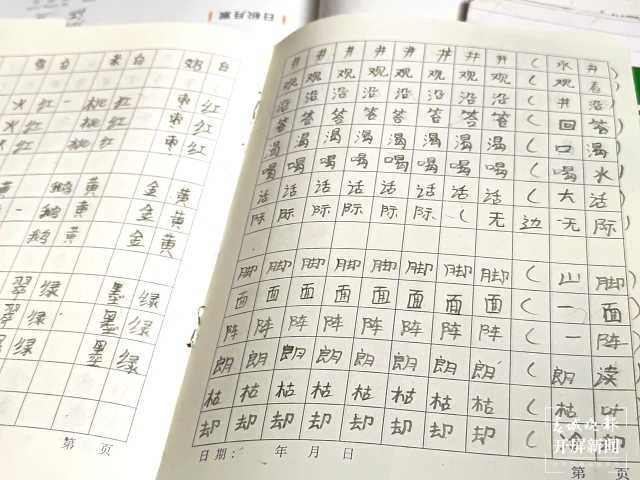 雪白 米白 奶白
火红 桃红 枣红
火红 桃红 枣红
火红 桃红 枣红
黄 鹅黄 金黄
鹅黄 金黄
鹅黄 金黄
翠绿 墨绿
翠绿 墨绿
翠绿 墨绿
第 页
日积月累
井井井井井井井井（水井）
观观观观观观观观（观看）
沿沿沿沿沿沿沿沿（井沿）
答答答答答答答答（回答）
渴渴渴渴渴渴渴渴（口渴）
喝喝喝喝喝喝喝喝（喝水）
活活活活活活活活（大活）
际际际际际际（无边无际）
脚脚脚脚脚脚脚脚（山脚
面面面面面面面面（一面
阵阵阵阵阵阵阵阵（一阵
朗朗朗朗朗朗朗朗（朗读
枯枯枯枯枯枯枯枯（枯叶
却却却却却却却却（
日期： 年 月 日
第 页
春城晚报
开屏新闻